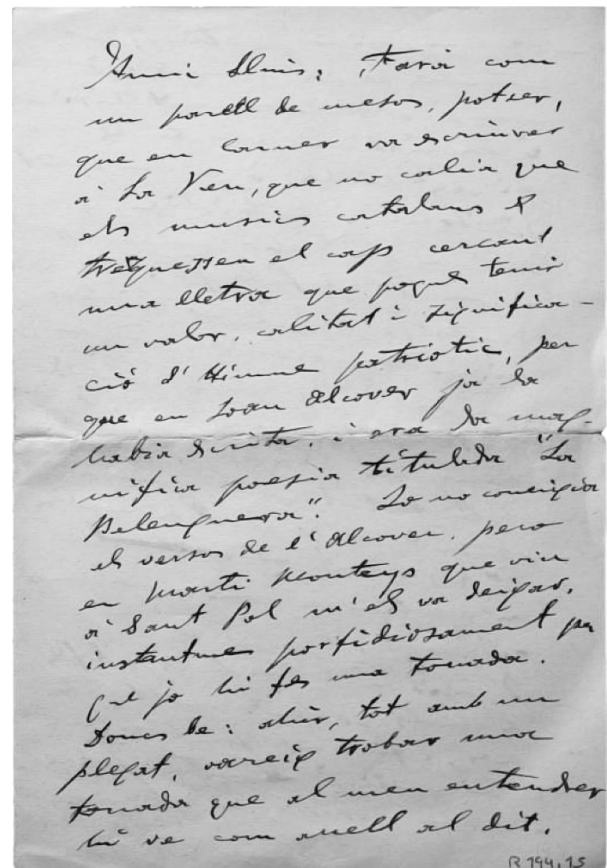 Amic Lluis: Farà com
un parell de mesos, potser,
que en Carner va escriurer
a La Veu, que no calia que
els musics catalans es
trequessen el cap cercant
una lletra que pogués tenir
un valor, calitat i significa-
ció d'Himne patriotic, per
que en Joan Alcover ja la
habia escrita, i era la mag-
nifica poesia titulada "La
Balenguera". Jo no coneigia
els versos de l'Alcover, pero
en Marti Monteys que viu
a Sant Pol m'els va deixar,
instantme porfidiosament per
que jo hi fes una tonada.
Doncs be: ahir, tot amb un
plegat, vareig trobar una
tonada que al meu entendrer
hi ve com anell al dit.
R 194.15